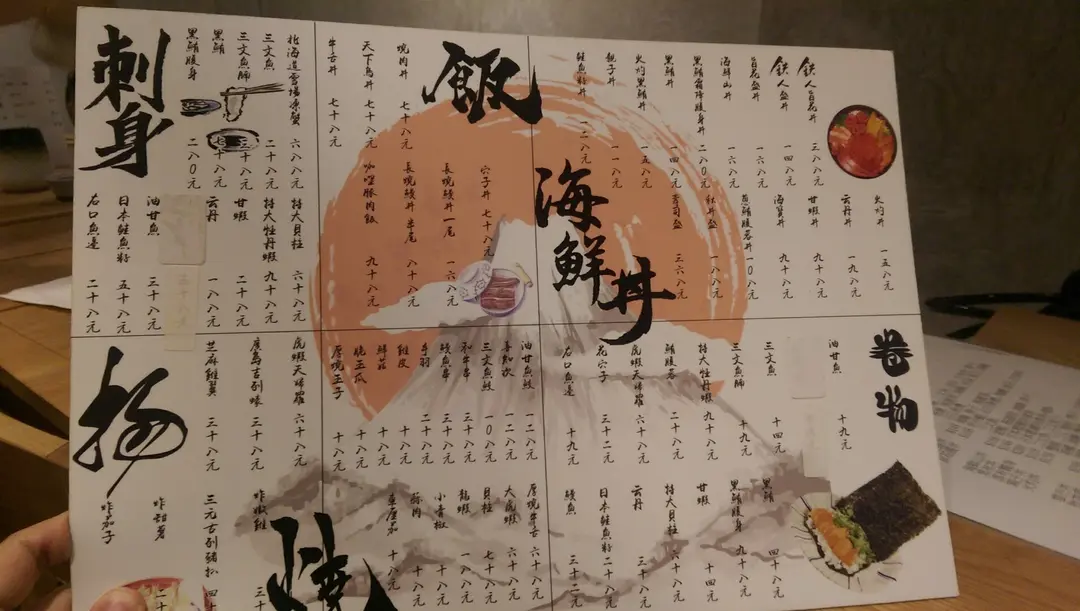 刺身
北海道雪場凍蟹 六十八元
三文魚 二十八元
三文魚師 三十八元
黑鮪 七十八元
黑鮪腹身 二八0元
特大貝柱 六十八元
特大牡丹蝦 九十八元
甘蝦 二十八元
云丹 一八八元
油甘魚 三十八元
日本鮭魚籽 五十八元
右口魚邊 二十八元
飯
燒肉丼 七十八元
天下鳥丼 七十八元
牛舌丼 七十八元
穴子丼 七十八元
長燒鰻丼一尾 一六八元
長燒鰻丼半尾 八十八元
咖喱豚肉飯 九十八元
海鮮丼
鉄人百花丼 三八八元
鉄人盛丼 一四八元
百花盛丼 一六八元
海鮮山丼 一六八元
黑鮪霜降腹身丼 二八0元
黑鮪丼 一四八元
火灼黑鮪丼 一五八元
親子丼 一一八元
鮭魚籽丼 一二八元
火灼丼 一五八元
云丹丼 一九八元
甘蝦丼 九十八元
海質丼 九十八元
魚鮪腹蓉丼 一0八元
彩丼盛 一八八元
壽司盛 三六八元
卷物
油甘魚 十九元
三文魚 十四元
三文魚師 十九元
特大牡丹蝦 九十八元
鮪腹蓉 二十八元
虎蝦天婦羅 六十八元
花穴子 三十二元
右口魚邊 十九元
黑鮪 四十八元
黑鮪腹身 九十八元
甘蝦 十四元
特大貝柱 六十八元
云丹 三十八元
日本鮭魚籽 二十八元
鰻魚 三十二元
揚
虎蝦天婦羅 六十八元
廣島吉列蠔 三十八元
芝麻雞翼 三十八元
炸嫩雞 三十
三元吉列豬扒 四十
炸甜薯
炸茄子
燒
油甘魚鮫 一二八元
喜知次 一二八元
三文魚鮫 一0八元
和牛串 三十八元
鰻魚串 三十八元
手羽 二十八元
雞皮 十八元
鮮菇 十八元
脆玉瓜 十八元
厚燒玉子 十八元
厚燒牛舌 六十八元
大虎蝦 六十八元
貝柱 七十八元
龍蝦 一八八元
小青椒 十八元
豚肉 十八元
東厘茄 十八元